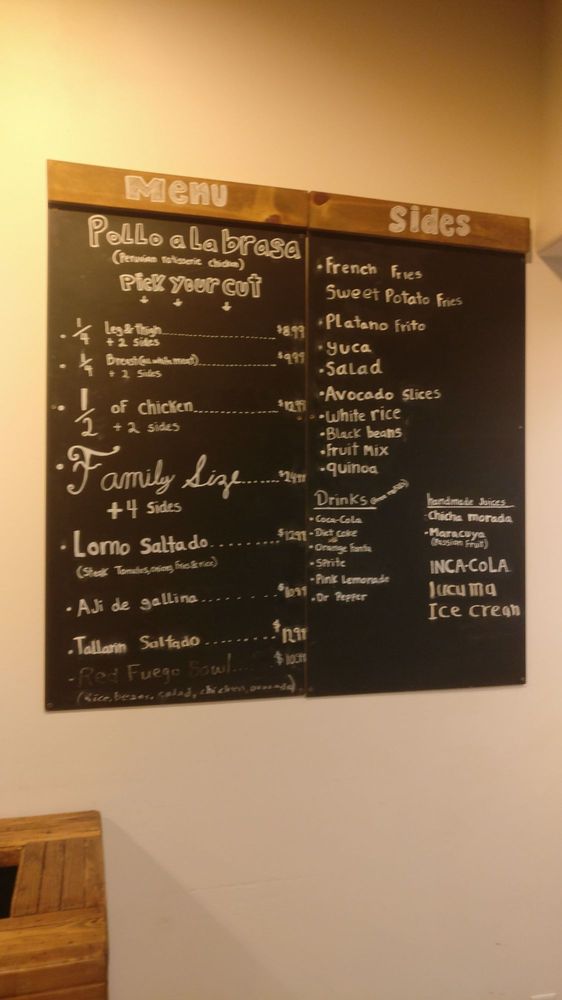 Menu
Pollo a la brasa
(Peruvian rotisserie chicken)
Pick your cut
1/4 Leg & thigh $8.99
+ 2 sides
1/4 Breast (all white meat) $9.99
+ 2 sides
1/2 of chicken $12.99
+ 2 sides
Family Size
+4 sides
Lomo Saltado $12.99
(Steak Tomatoes, onions, fries & rice)
Aji de gallina $10.99
Tallarin Saltado
Red Fuego Bowl $10.99
(Rice, beans, salad, chicken, avocado)
Sides
French Fries
Sweet Potato Fries
Platano Frito
Yuca
Salad
Avocado Slices
White rice
Black beans
Fruit Mix
quinoa
Drinks
Coca-Cola
Diet Coke
Orange Fanta
Sprite
Pink Lemonade
Dr Pepper
handmade Juices
Chicha morada
Maracuya
(Passion Fruit)
INCA-COLA
lucuma
Ice cream